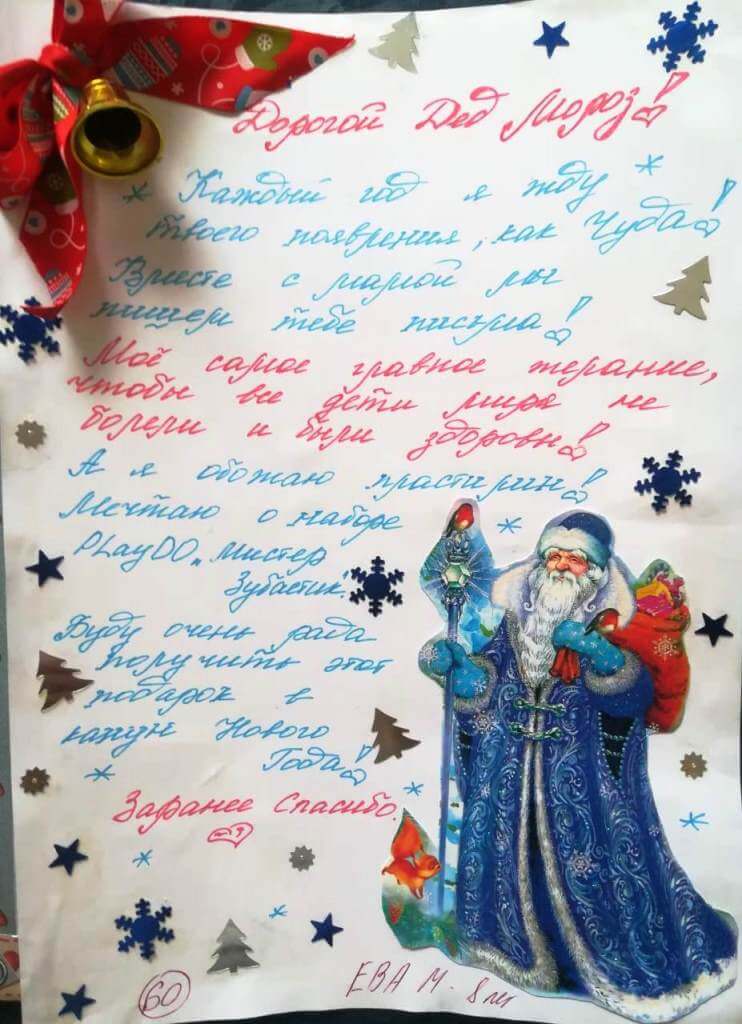 Дорогой Дед Мороз!
Каждый год я жду
твоего появления, как Чуда!
Вместе с мамой мы
пишем тебе письма!
Моё самое главное желание,
чтобы все дети мира не
болели и были здоровы!
А я обожаю пластилин!
Мечтаю о наборе
PLayDO „Мистер
Зубастик".
Буду очень рада
получить этот
подарок в
канун Нового
Года!
Заранее Спасибо
60
ЕВА М. 8 лет